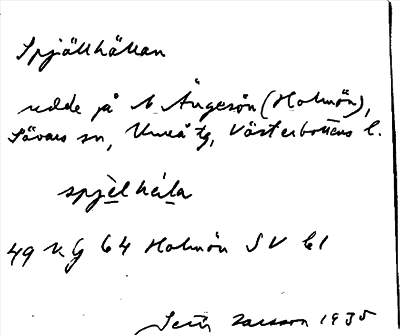 Spjällhällan
udde på N Ängesön (Holmön),
Sävars sn, Umeå tg, Västerbottens l.
spjèlhä́la
49 NG 64 Holmön SV bl
Larsson 1935